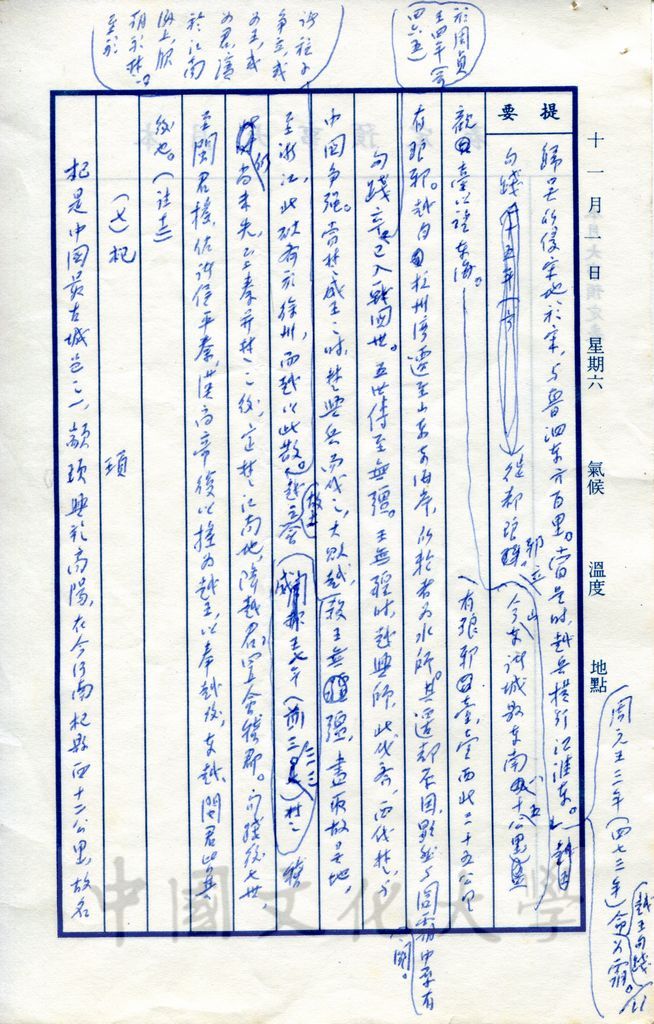 提要
十一月一日 星期六 氣候 溫度 地點
周元王三年(四七三年)命為霸。
越王句踐
歸吳所侵宋地於宋,与魯泗東方百里。當是時,越兵橫行江淮東。
句踐 徙都琅邪。今山東諸城縣東南 十公里
觀臺以望東海。
(有琅邪臺,臺西北二十五公里
於周貞王四年(前四六五)
有琅邪。越自杭州灣遷至山東之海岸,所於者為水師。其遷都原因,顯然与圖霸中原有關。
句踐卒,已入戰國世。五世傳至無彊。王無彊時,越興師,北伐齊,西伐楚,与
中國爭強。當楚威王之時,楚興兵而伐之,大敗越,殺王無彊,盡取故吳地,
至浙江,北破齊於徐州,而越以此散。
諸族子爭立,或為王,或為君,濱於江南海上,服朝於楚。
威王七年(前三三三)楚
尚未失,至秦并楚之後,定楚江南地,降越君,置會稽郡。句踐後七世,
至閩君搖,佐諸侯平秦。漢高帝復以搖為越王,以奉越後。東越、閩君皆其
後也。(註十)
(七)杞
杞是中國最古城邑之一,顓頊興於高陽,在今河南杞縣西十二公里,故名
頊
中國文化大學